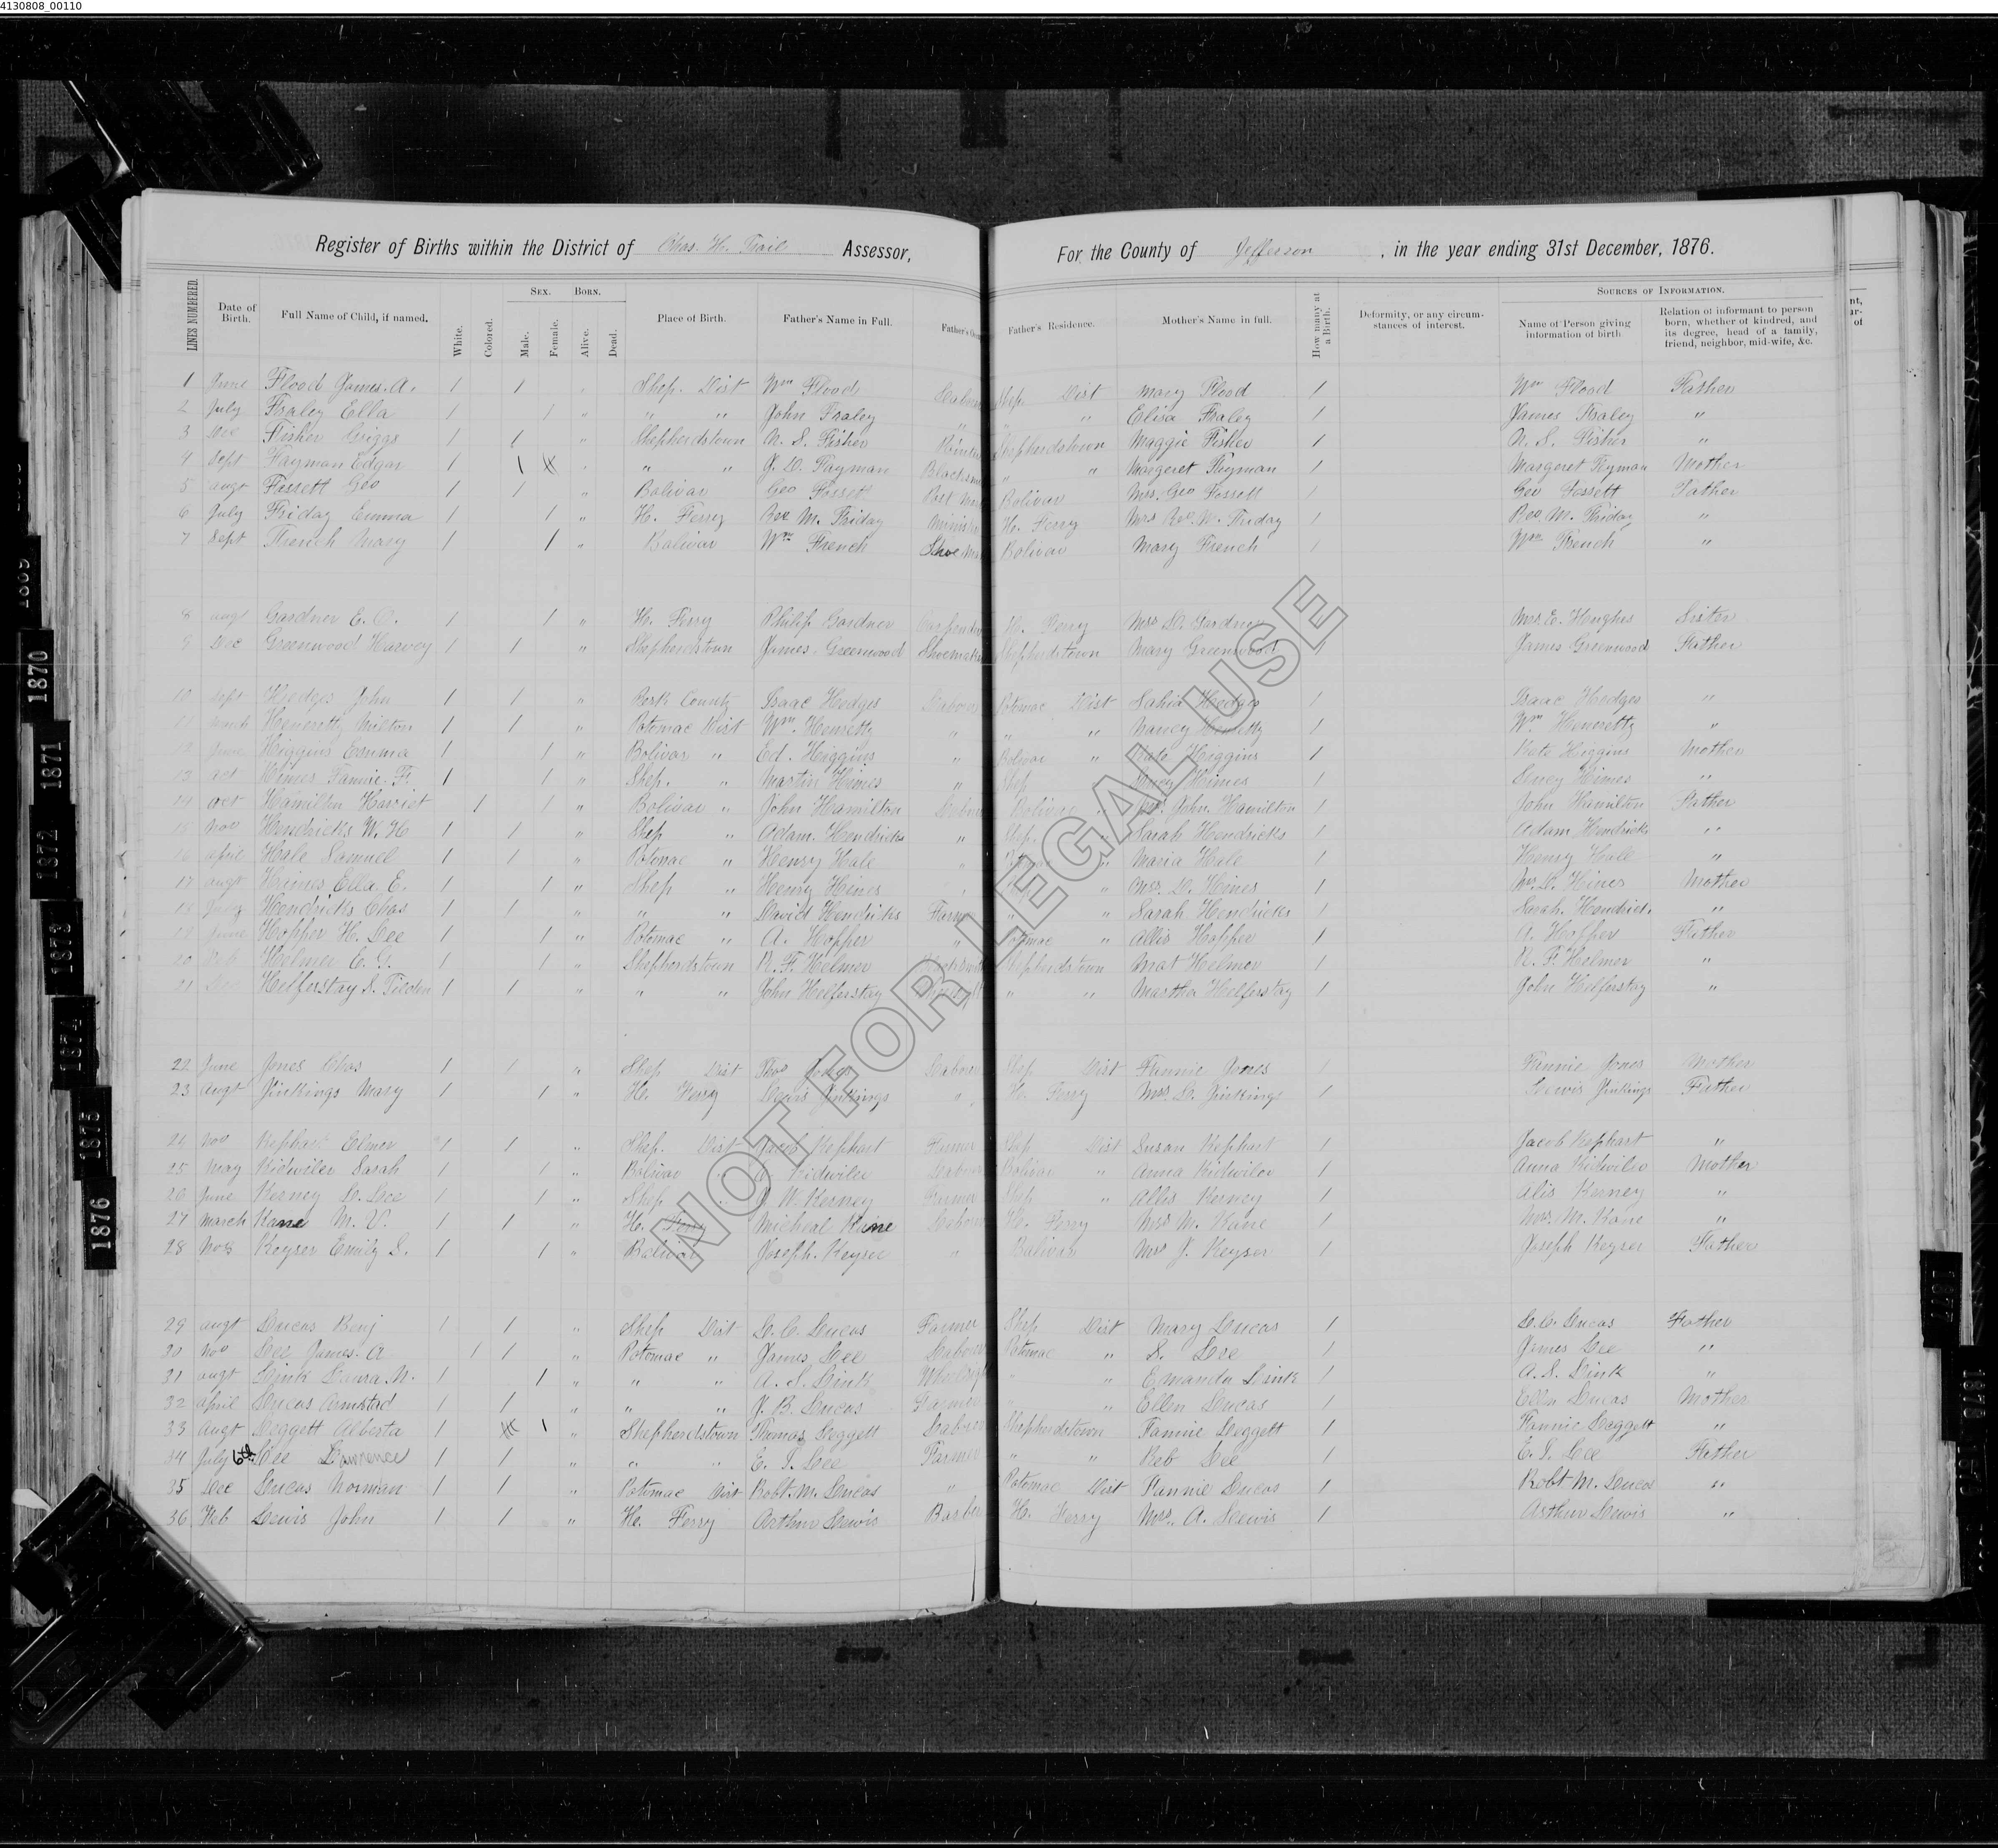 4130808_00110
Register of Births within the District of Chas. H. Trail Assessor, For the County of Jefferson, in the year ending 31st December, 1876.
LINES NUMBERED. Date of Birth. Full Name of Child, if named. White. Colored. SEX. Male. Female. BORN. Alive. Dead. Place of Birth. Father's Name in Full. Father's Father's Residence. Mother's Name in full. How many at a Birth. Deformity, or any circumstances of interest. SOURCES OF INFORMATION. Name of Person giving information of birth Relation of informant to person born, whether of kindred, and its degree, head of a family, friend, neighbor, mid-wife, &c.
1 June Flood James. A. 1 1 " Shep. Dist Wm Flood Labor Shep. Dist Mary Flood 1 Wm Flood Father
2 July Fraley Ella 1 1 " " " John Fraley " " " Elisa Fraley 1 James Fraley "
3 Dec Fisher Griggs 1 1 " Shepherdstown N. S. Fisher Shepherdstown Maggie Fisher 1 N. S. Fisher "
4 Sept Fayman Edgar 1 1 " " " J. D. Fayman Blacksm " " Margeret Fayman 1 Margeret Fayman Mother
5 augt Fossett Geo 1 1 " Bolivar Geo Fossett Bolivar Mrs. Geo Fossett 1 Geo Fossett Father
6 July Friday Emma 1 1 " H. Ferry Rev M. Friday Minister H. Ferry Mrs Rev. M. Friday 1 Rev. M. Friday "
7 Sept French Mary 1 1 " Bolivar Wm French Shoe Ma Bolivar Mary French 1 Wm French "
8 augt Gardner E. O. 1 1 " H. Ferry Philip Gardner Carpenter H. Ferry Mrs D. Gardner Mrs. E. Hughes Sister
9 Dec Greenwood Harvey 1 1 " Shepherdstown James. Greenwood Shoemaker Shepherdstown Mary Greenwood 1 James Greenwood Father
10 Sept Hedges John 1 1 " Berk. County Isaac Hedges Laborer Potomac Dist Hedges 1 Isaac Hedges "
11 March Henretty Milton 1 1 " Potomac Dist Wm. Henretty " " " Nancy Henretty 1 Wm Henretty "
12 June Higgins Emma 1 1 " Bolivar " Ed. Higgins " Bolivar " Kate Higgins 1 Kate Higgins Mother
13 oct Himes Fannie. F. 1 1 " Shep. " Martin Himes " Shep Himes 1 Himes "
14 oct Hamilton Harriet 1 1 " Bolivar " John Hamilton Bolivar " Mrs. John. Hamilton 1 John Hamilton Father
15 Nov Hendricks W. H 1 1 " Shep " Adam. Hendricks " Shep. " Sarah Hendricks 1 Adam Hendricks "
16 april Hale Samuel 1 1 " Potomac " Henry Hale " Potomac " Maria Hale 1 Henry Hale "
17 augt Ella E. 1 1 " Shep " Henry Hines " " Mrs. D. Hines 1 Mrs. D. Hines Mother
18 July Hendricks Chas 1 1 " " " David Hendricks Farm " " Sarah Hendricks 1 Sarah. Hendrick. "
19 June Hopper H. Lee 1 1 " Potomac " A. Hopper " Potomac " Allis Hopper 1 A. Hopper Father
20 Feb Helmer E. 1 1 " Shepherdstown R. F. Helmer Shepherdstown Helmer 1 R. F. Helmer "
21 Dec Helferstay S. Tilden 1 1 " " " John Helferstay " " Martha Helferstay 1 John Helferstay "
22 June Jones Chas 1 1 " Shep Dist Thos Jones Labour Shep Dist Fannie Jones 1 Fannie Jones Mother
23 augt Jinkings Mary 1 1 " H. Ferry Lewis Jinkings " H. Ferry Mrs. L. Jinkings 1 Lewis Jinkings Father
24 Nov Kephart Elmer 1 1 " Shep. Dist Jacob Kephart Farmer Shep Dist Susan Kephart 1 Jacob Kephart "
25 May Kidwiler Sarah 1 1 " Bolivar Kidwiler Labour Bolivar " Anna Kidwiler 1 Anna Kidwiler Mother
26 June Kerney L. Lee 1 1 " Shep W. Kerney Farmer Shep " Allis Kerney 1 Alis Kerney "
27 March Kane M. V. 1 1 " H. Ferry Micheal Kane Labour H. Ferry Mrs M. Kane 1 Mrs. M. Kane "
28 Nov Keyser Emily S. 1 1 " Bolivar Joseph. Keyser " Bolivar Mrs J. Keyser 1 Joseph Keyser Father
29 augt Lucas Benj 1 1 " Shep Dist L. C. Lucas Farmer Shep Dist Mary Lucas 1 L. C. Lucas Father
30 Nov Lee James. A 1 1 " Potomac " James Lee Labour Potomac " S. Lee 1 James Lee "
31 augt Link Laura N. 1 1 " " " A. S. Link " " Emanda Link 1 A. S. Link "
32 april Lucas Armstrd 1 1 " " " J. B. Lucas Farmer " " Ellen Lucas 1 Ellen Lucas Mother
33 Augt Leggett Alberta 1 1 " Shepherdstown Thomas Leggett Labrer Shepherdstown Fannie Leggett 1 Fannie Leggett "
34 July 6th Lee Lawrence 1 1 " " " E. I. Lee Farmer " " Reb Lee 1 E. I. Lee Father
35 Dec Lucas Norman 1 1 " Potomac Dist Robt. M. Lucas " Potomac Dist Fannie Lucas 1 Robt M. Lucas "
36 Feb Lewis John 1 1 " H. Ferry Arthur Lewis Barber H. Ferry Mrs. A. Lewis 1 Arthur Lewis "
NOT FOR LEGAL USE
1870
1871
1872
1873
1874
1875
1876
1877
1878